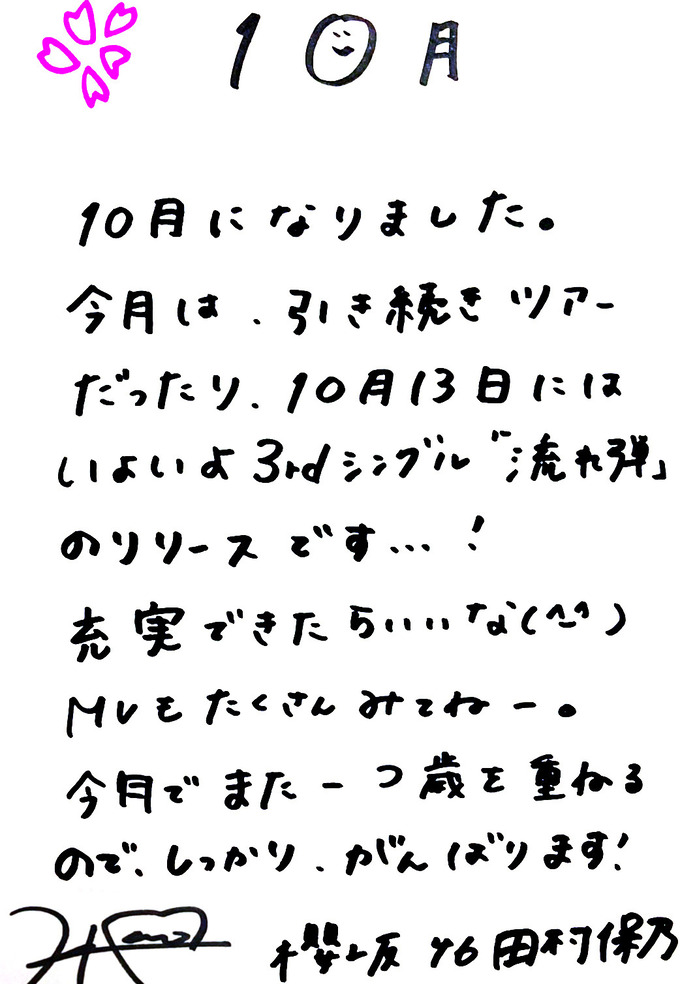 10月
10月になりました。
今月は、引き続きツアー
だったり、10月13日には
いよいよ3rdシングル「流れ弾」
のリリースです…!
充実できたらいいな(^-^)
MVもたくさんみてねー。
今月でまた一つ歳を重ねる
ので、しっかり、がんばります!
櫻坂46 田村保乃